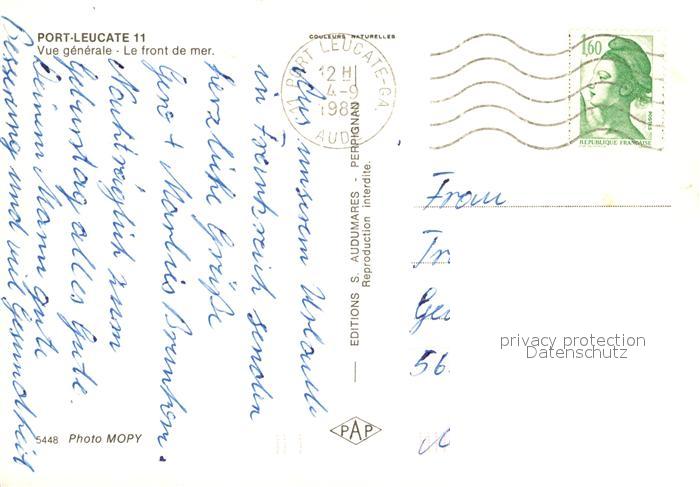 PORT-LEUCATE 11
Vue générale - Le front de mer.
COULEURS NATURELLES
11 PORT LEUCATE-CA
12 H
4-9
198
AUDE
1,60
REPUBLIQUE FRANÇAISE
Aus unserem Urlaub
in Frankreich senden
herzliche Grüße
Gerd + Marlies
Nachträglich zum
Geburtstag alles Gute.
Deinem Mann gute
Besserung und viel Gesundheit
EDITIONS S. AUDUMARES - PERPIGNAN
Reproduction interdite.
Frau
56
privacy protection
Datenschutz
5448 Photo MOPY
PAP